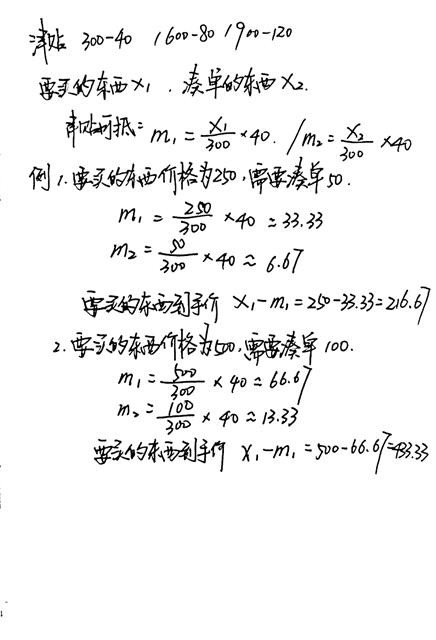 津贴 300-40 / 600-80 / 900-120
要买的东西 X₁ . 凑单的东西 X₂.
津贴可抵: m₁ = X₁/300 ×40. / m₂ = X₂/300 ×40
例 1. 要买的东西价格为250, 需要凑单50.
m₁ = 250/300 ×40 ≈ 33.33
m₂ = 50/300 ×40 ≈ 6.67
要买的东西到手价 X₁-m₁ = 250-33.33=216.67
2. 要买的东西价格为500, 需要凑单 100.
m₁ = 500/300 × 40 ≈ 66.67
m₂ = 100/300 × 40 ≈ 13.33
要买的东西到手价 X₁-m₁ = 500-66.67=433.33